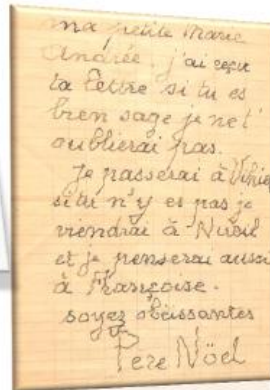 ma petite Marie
Andrée. j'ai reçu
ta lettre si tu es
bien sage je ne t'
oublierai pas.
Je passerai à Vihie
si tu n'y es pas je
viendrai à Nueil
et je penserai aussi
à Françoise.
soyez obéissantes
Père Nöel